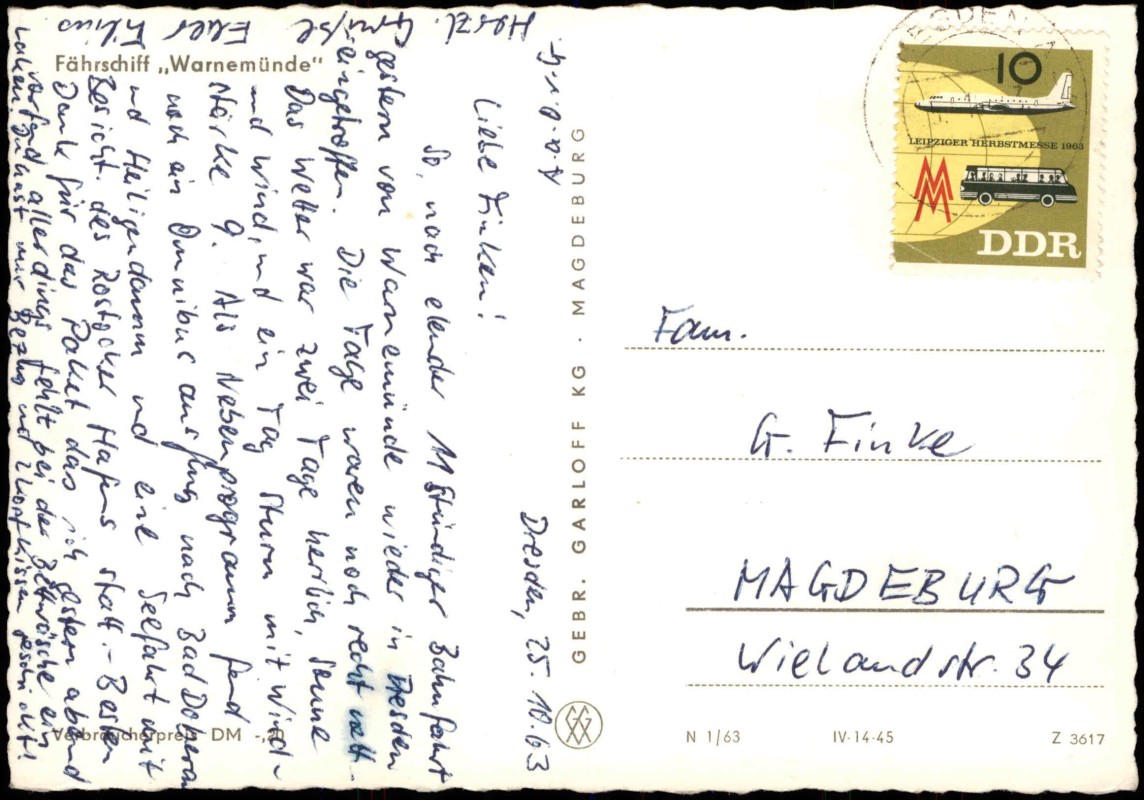 Fährschiff „Warnemünde"
Dresden, 25.10.63
Liebe Finken!
So, nach elender 11 stündiger Bahnfahrt
gestern von Warnemünde wieder in Dresden
eingetroffen. Die Tage waren noch recht nett.
Das Wetter war zwei Tage herrlich, Sonne
und Wind, und ein Tag Sturm mit Wind-
stärke 9. Als Nebenprogramm fand
noch ein Omnibusausflug nach Bad Doberan
und Heiligendamm und eine Seefahrt mit
Besicht. des Rostocker Hafens statt. - Besten
Dank für das Paket das ich gestern abend
vorfand, allerdings fehlt bei der Bettwäsche ein
Laken. Du hast nur Bezug und 2 Kopfkissen geschickt!
Herzl. Grüße Euer Filius
GEBR. GARLOFF KG · MAGDEBURG
Verbraucherpreis DM -,20
GDEBU
10
LEIPZIGER HERBSTMESSE 1963
MM
DDR
Fam.
G. Finke
MAGDEBURG
Wielandstr. 34
N 1/63 IV-14-45 Z 3617